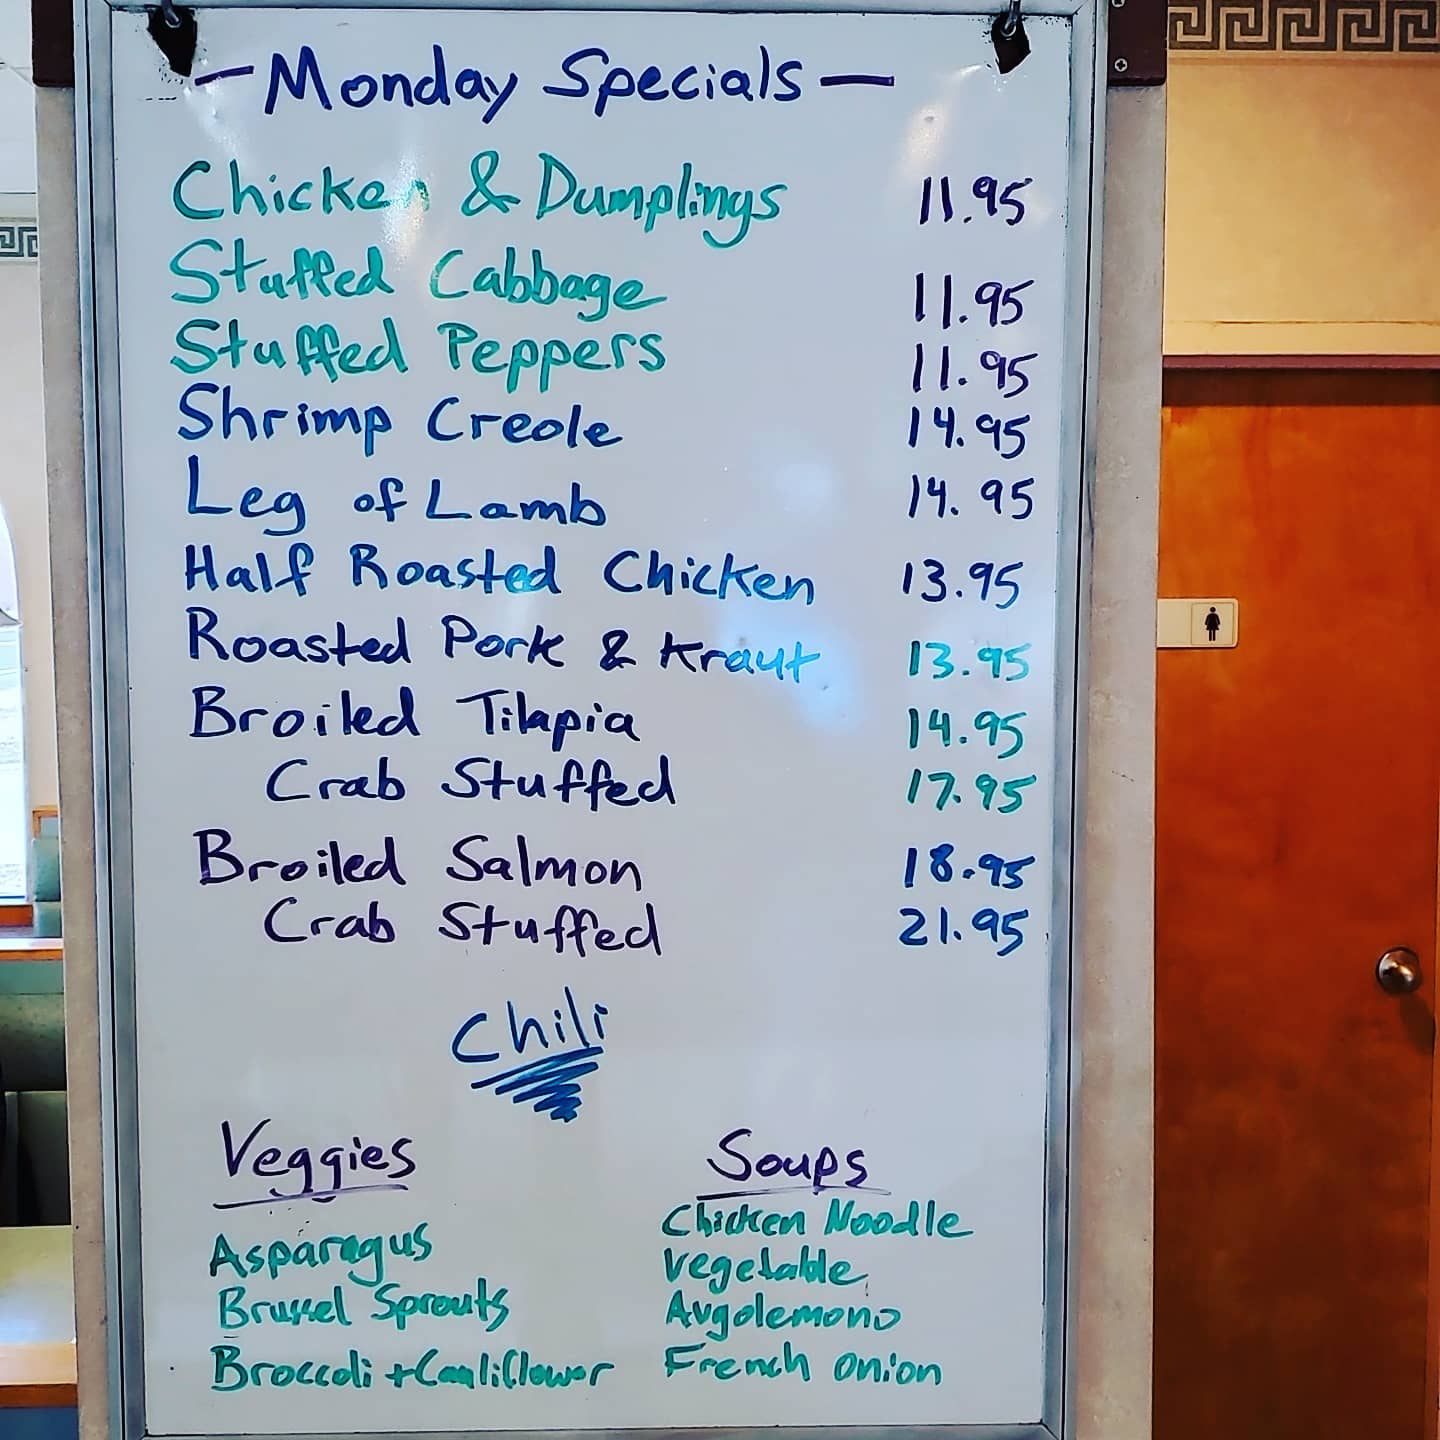 — Monday Specials —
Chicken & Dumplings 11.95
Stuffed Cabbage 11.95
Stuffed Peppers 11.95
Shrimp Creole 14.95
Leg of Lamb 14.95
Half Roasted Chicken 13.95
Roasted Pork & Kraut 13.95
Broiled Tilapia 14.95
Crab Stuffed 17.95
Broiled Salmon 18.95
Crab Stuffed 21.95
Chili
Veggies
Asparagus
Brussel Sprouts
Broccoli + Cauliflower
Soups
Chicken Noodle
Vegetable
Avgolemono
French Onion